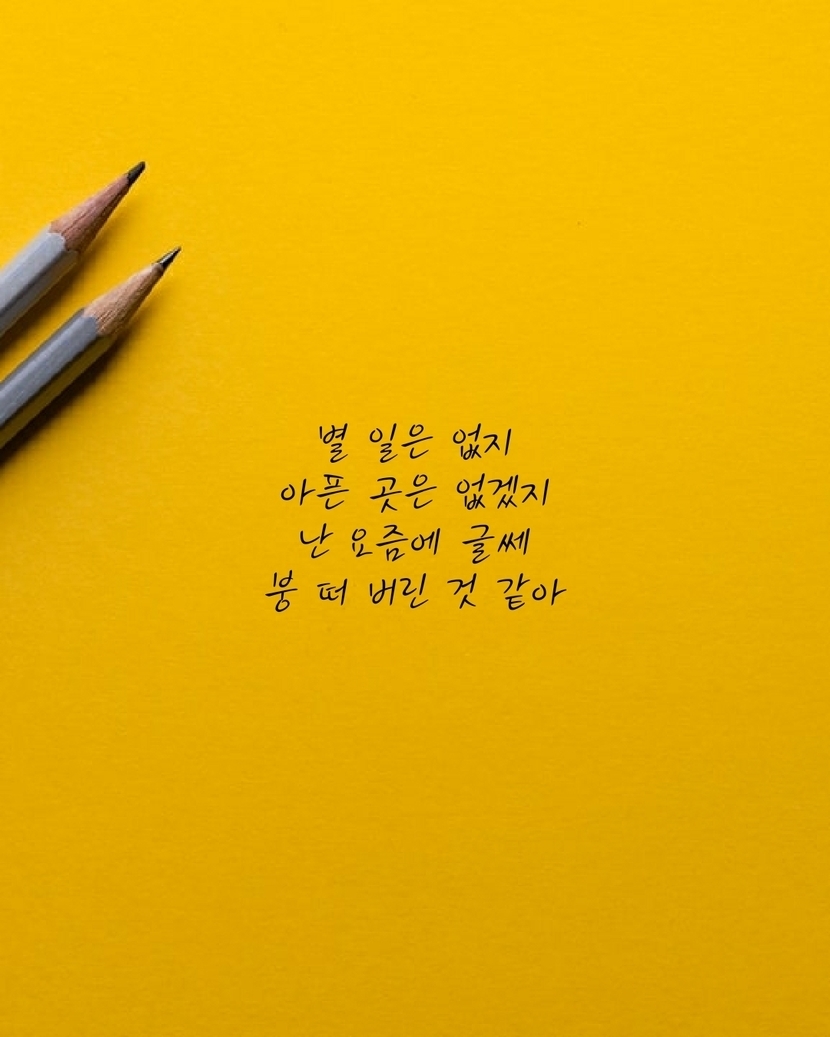 별 일은 없지
아픈 곳은 없겠지
난 요즘에 글쎄
붕 떠 버린 것 같아